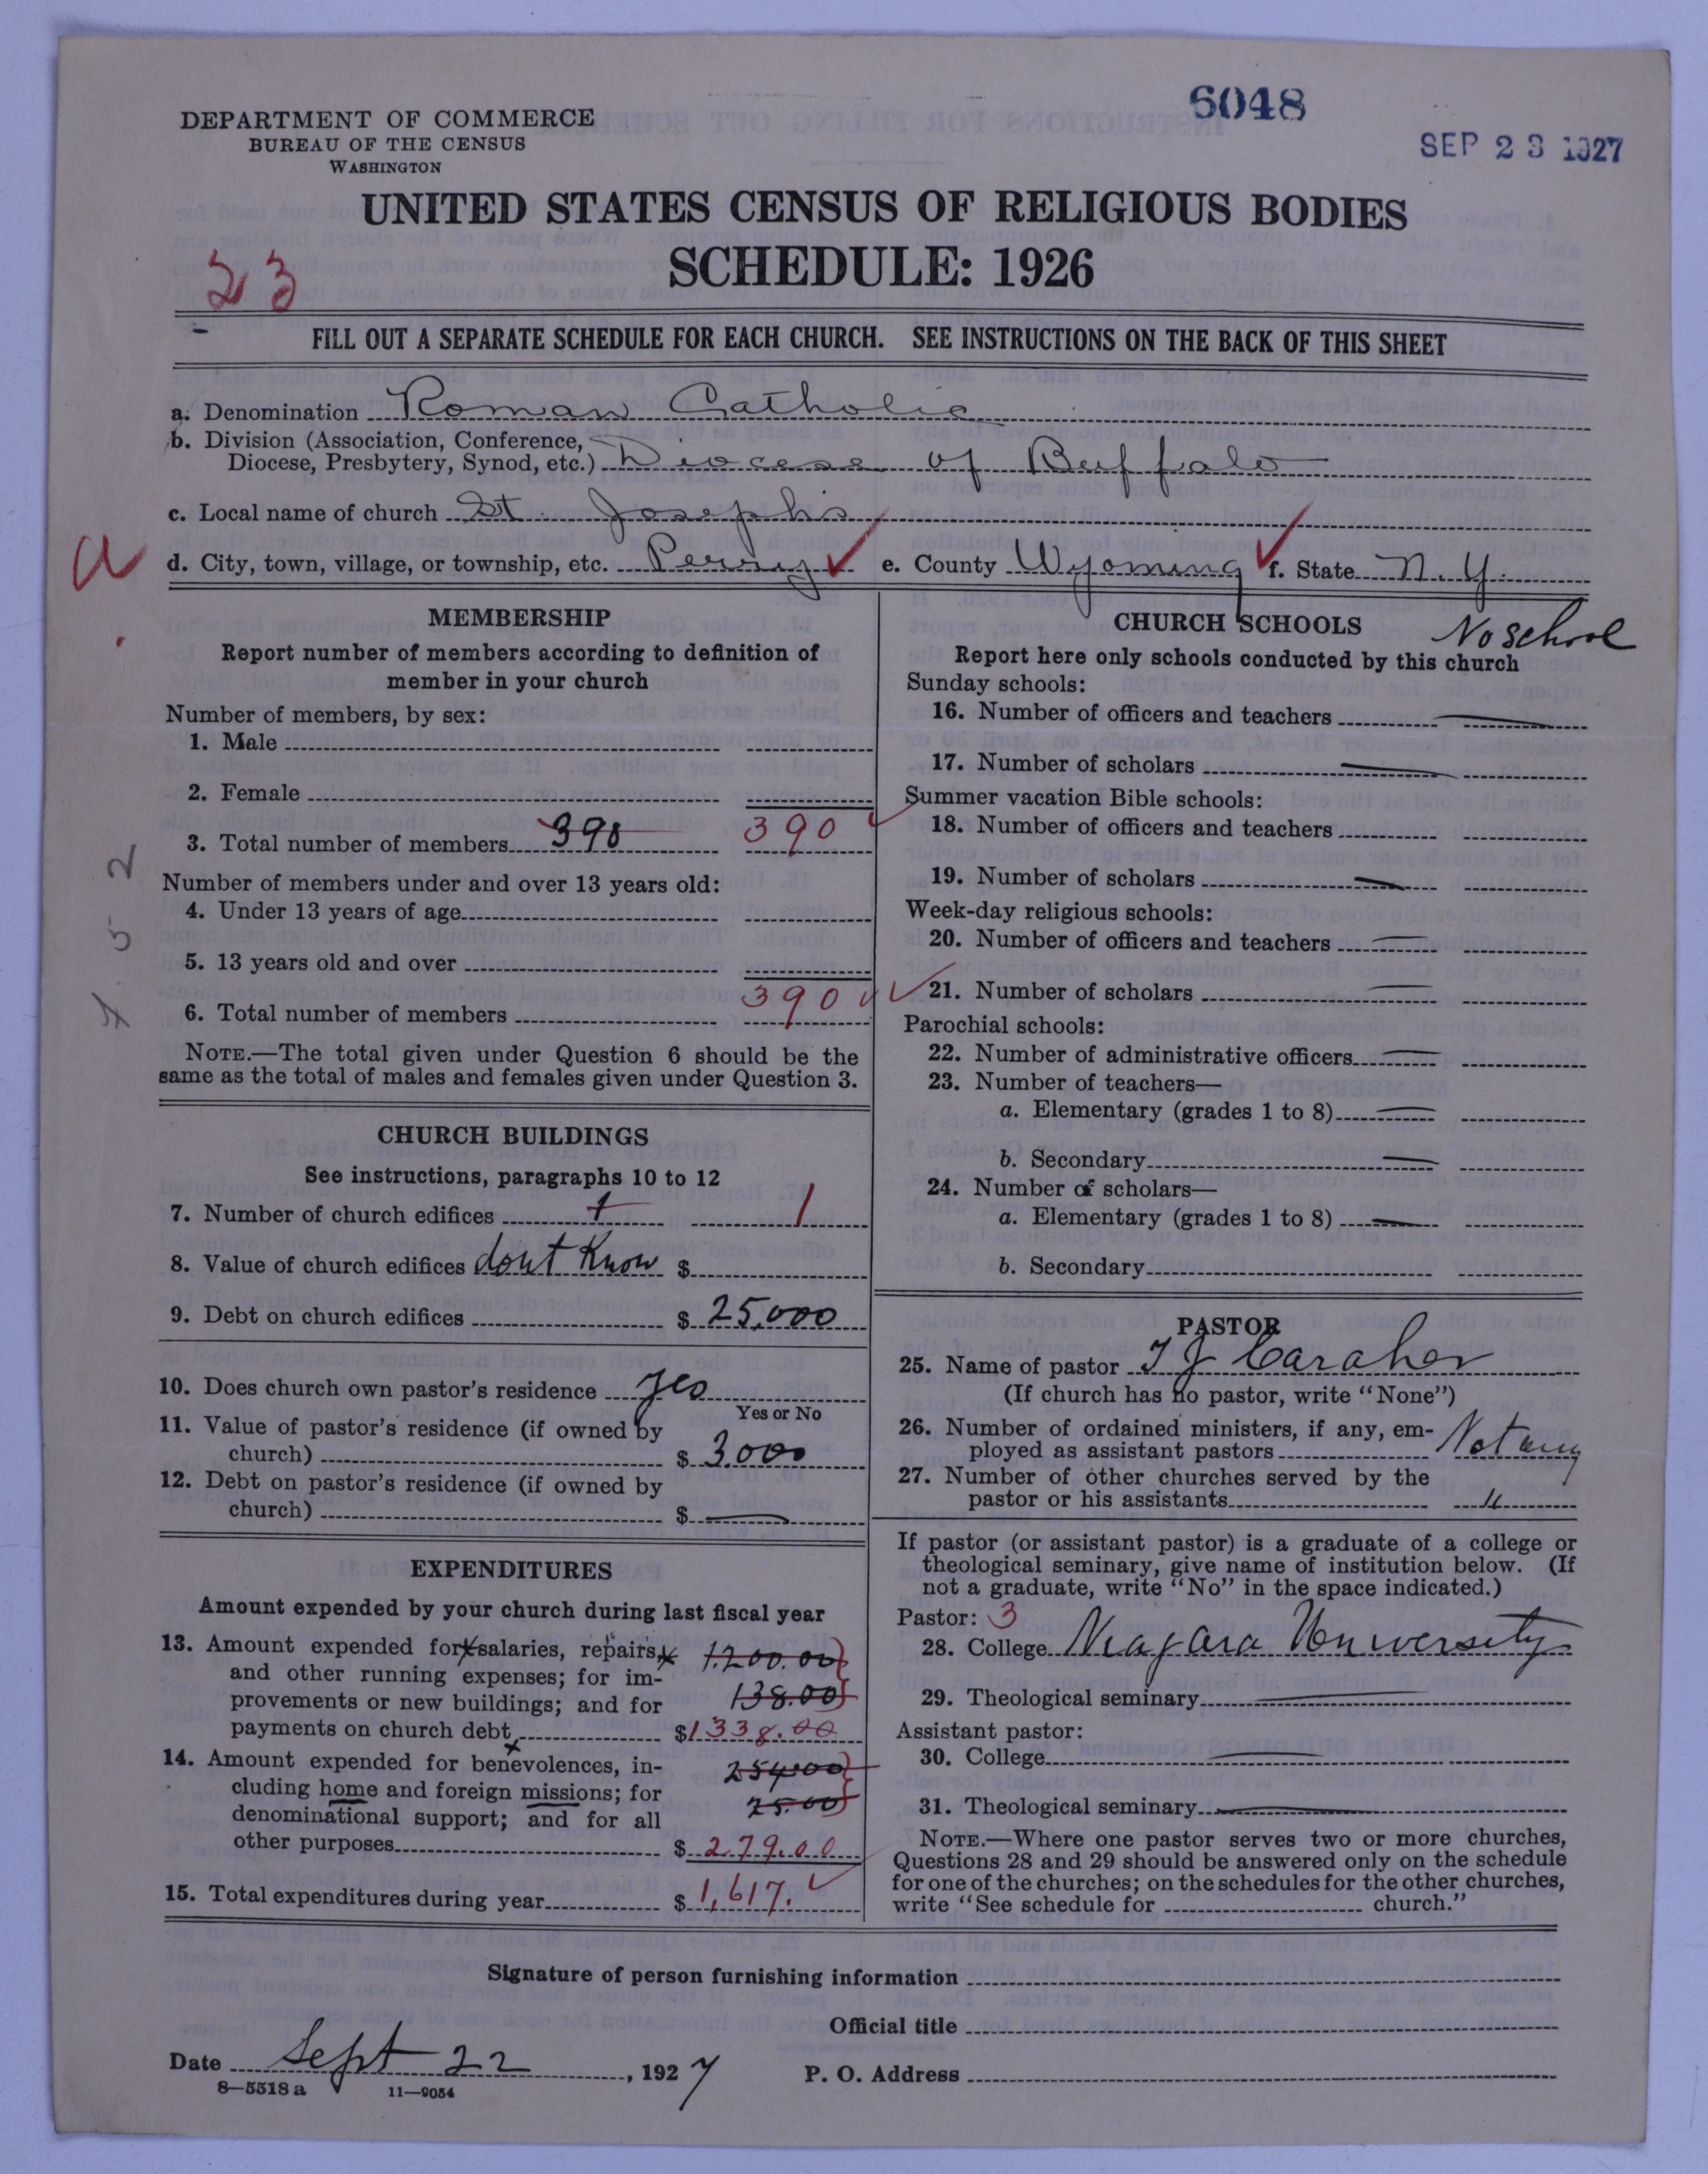 6048
SEP 23 1927
DEPARTMENT OF COMMERCE
BUREAU OF THE CENSUS
WASHINGTON
UNITED STATES CENSUS OF RELIGIOUS BODIES
SCHEDULE: 1926
23
FILL OUT A SEPARATE SCHEDULE FOR EACH CHURCH. SEE INSTRUCTIONS ON THE BACK OF THIS SHEET
a. Denomination Roman Catholic
b. Division (Association, Conference,
Diocese, Presbytery, Synod, etc.) Diocese of Buffalo
c. Local name of church St. Joseph's
a
d. City, town, village, or township, etc. Perry e. County Wyoming f. State N. Y.
MEMBERSHIP
Report number of members according to definition of
member in your church
Number of members, by sex:
1. Male
2. Female
3. Total number of members 390 390
Number of members under and over 13 years old:
4. Under 13 years of age
5. 13 years old and over
6. Total number of members 390
NOTE.—The total given under Question 6 should be the
same as the total of males and females given under Question 3.
CHURCH BUILDINGS
See instructions, paragraphs 10 to 12
7. Number of church edifices 1 1
8. Value of church edifices dont Know $
9. Debt on church edifices $ 25,000
10. Does church own pastor's residence yes
Yes or No
11. Value of pastor's residence (if owned by
church) $ 3.000
12. Debt on pastor's residence (if owned by
church) $ —
EXPENDITURES
Amount expended by your church during last fiscal year
13. Amount expended for salaries, repairs, 1.200.00
and other running expenses; for im-
provements or new buildings; and for 138.00
payments on church debt $ 1338.00
14. Amount expended for benevolences, in- 254.00
cluding home and foreign missions; for
denominational support; and for all 25.00
other purposes $ 279.00
15. Total expenditures during year $ 1,617.
CHURCH SCHOOLS No school
Report here only schools conducted by this church
Sunday schools:
16. Number of officers and teachers —
17. Number of scholars —
Summer vacation Bible schools:
18. Number of officers and teachers
19. Number of scholars —
Week-day religious schools:
20. Number of officers and teachers —
21. Number of scholars —
Parochial schools:
22. Number of administrative officers —
23. Number of teachers—
a. Elementary (grades 1 to 8) —
b. Secondary —
24. Number of scholars—
a. Elementary (grades 1 to 8) —
b. Secondary
PASTOR
25. Name of pastor T J Caraher
(If church has no pastor, write "None")
26. Number of ordained ministers, if any, em-
ployed as assistant pastors Not any
27. Number of other churches served by the
pastor or his assistants "
If pastor (or assistant pastor) is a graduate of a college or
theological seminary, give name of institution below. (If
not a graduate, write "No" in the space indicated.)
Pastor: 3
28. College Niagara University
29. Theological seminary —
Assistant pastor:
30. College —
31. Theological seminary —
NOTE.—Where one pastor serves two or more churches,
Questions 28 and 29 should be answered only on the schedule
for one of the churches; on the schedules for the other churches,
write "See schedule for church."
Signature of person furnishing information
Official title
Date Sept 22, 1927 P. O. Address
8—5518 a 11—9054